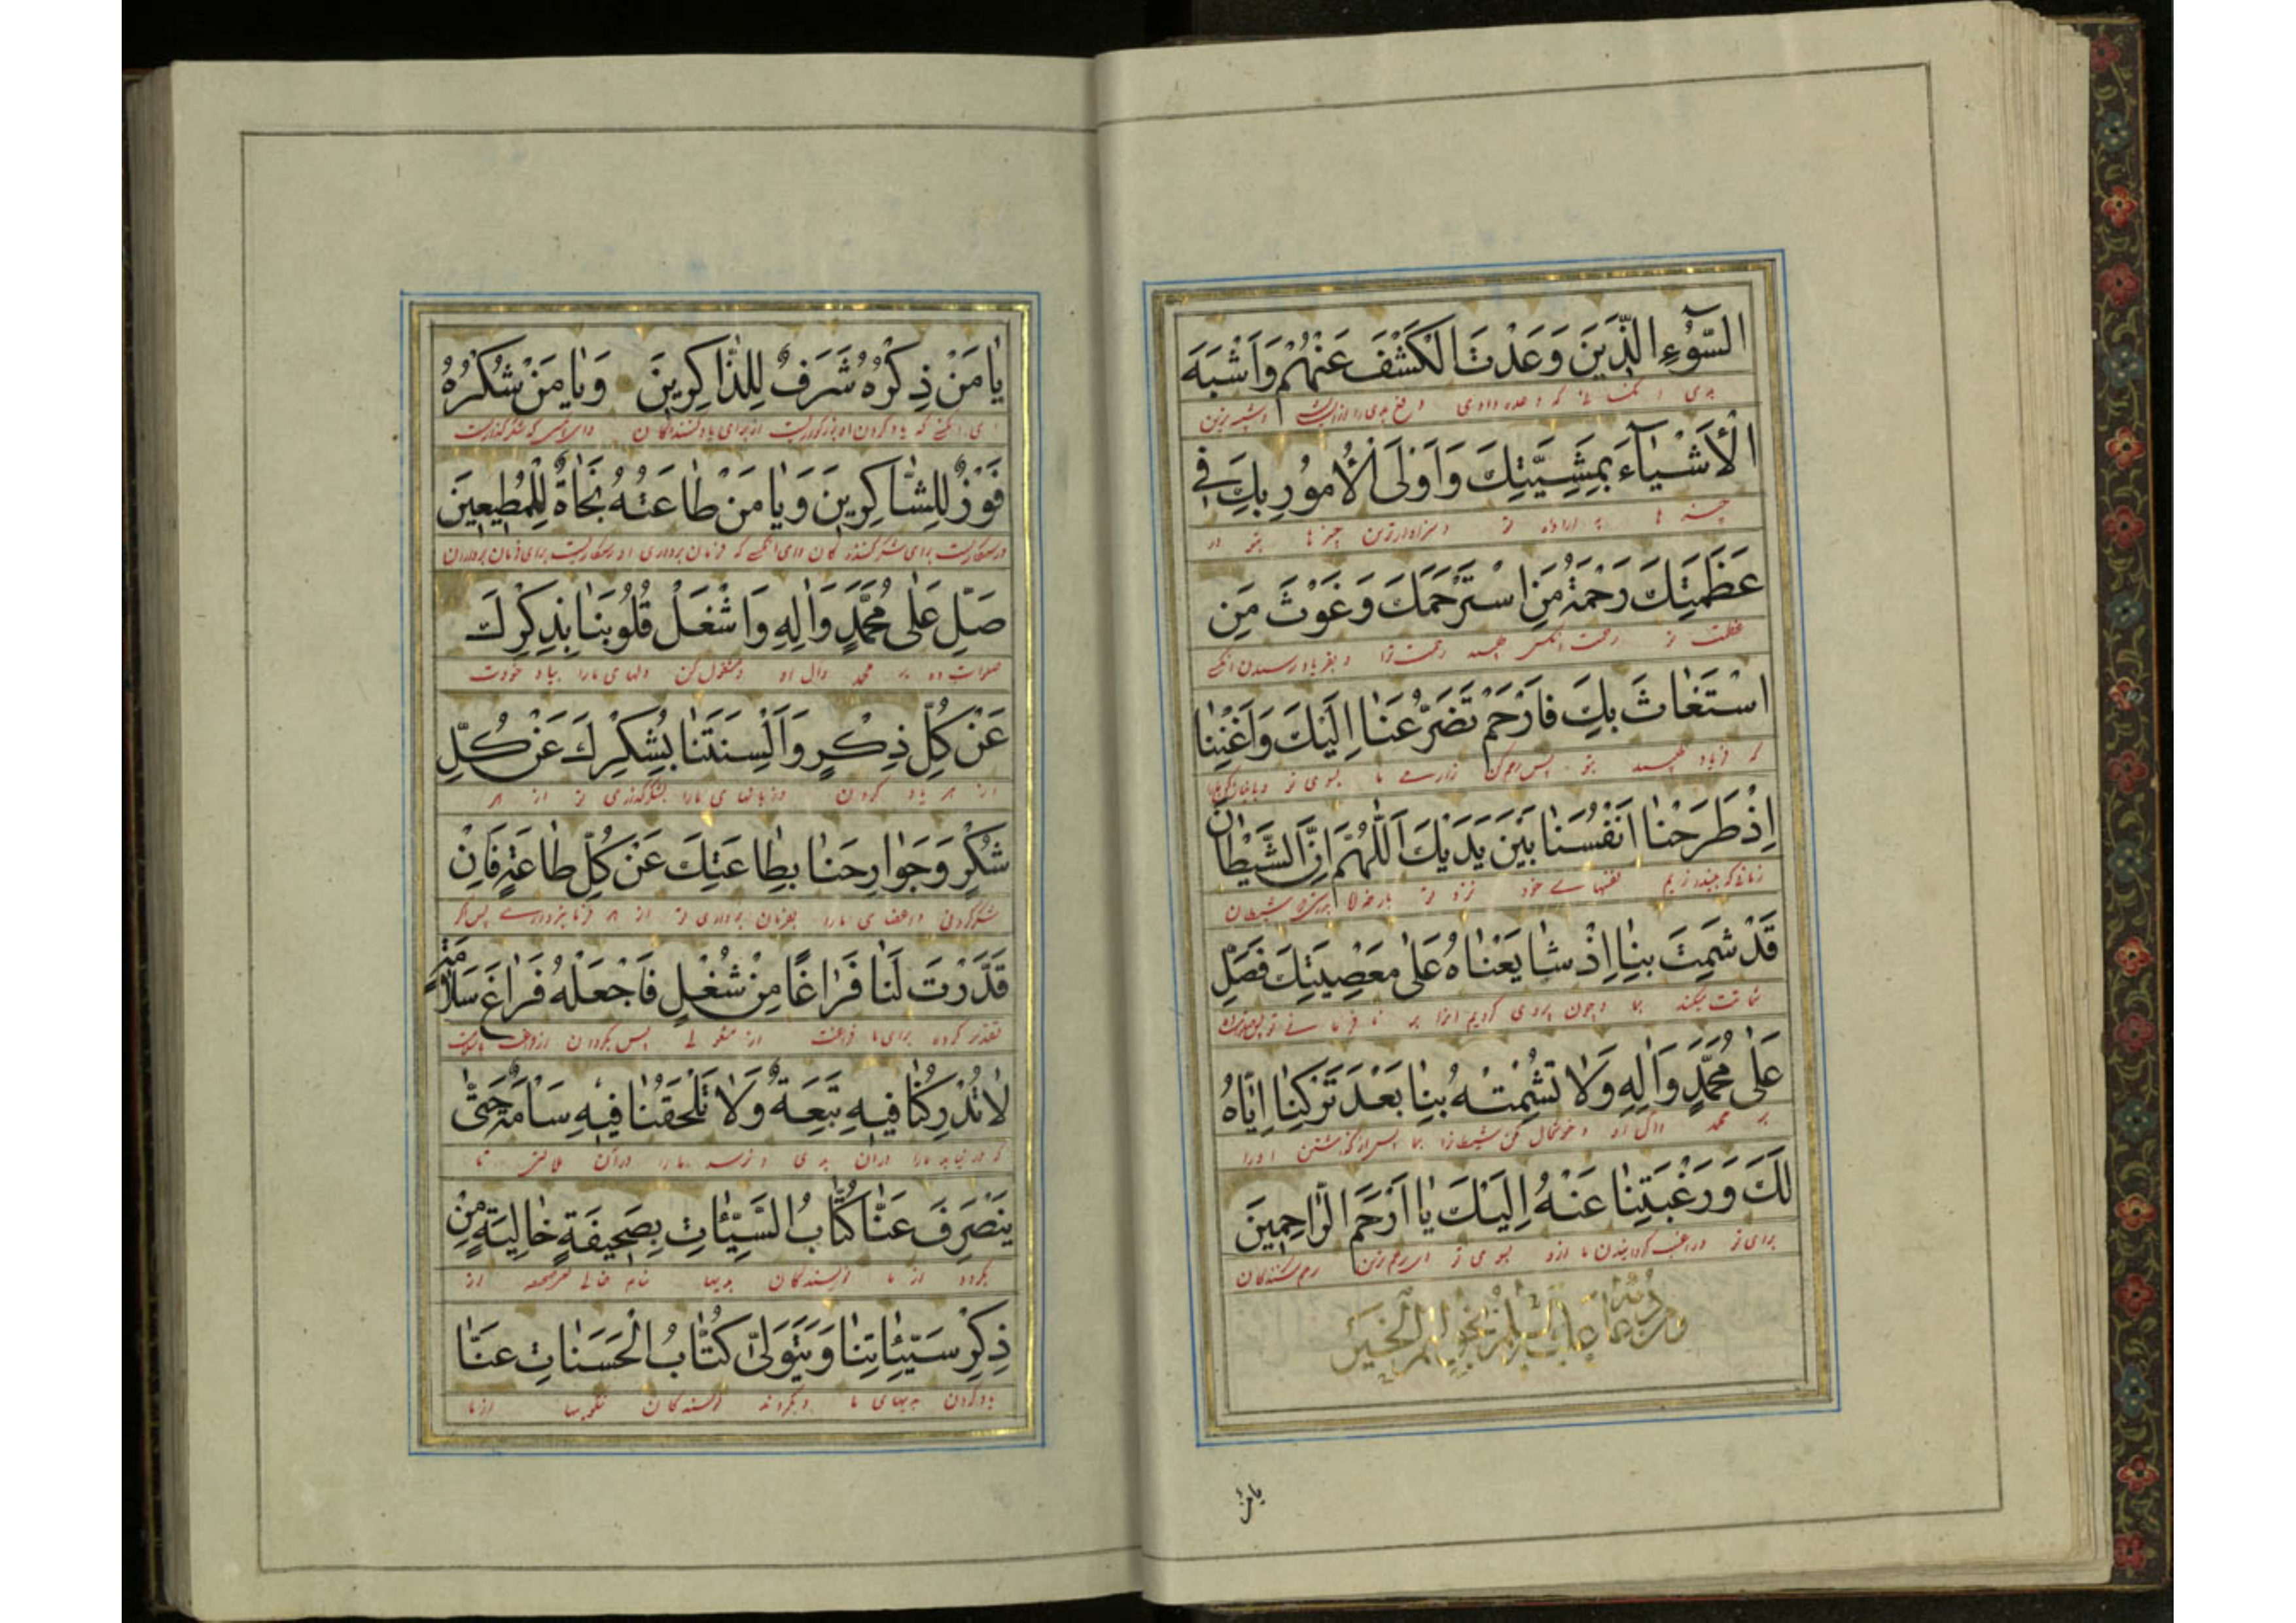 السُّوءِ الَّذِينَ وَعَدْتَ الْكَشْفَ عَنْهُمْ وَاَشْبَهَ
بدی را که وعده دادی دفع بدی را از ایشان و شبیه ترین
الْاَشْيَآءِ بِمَشِيَّتِكَ وَاَوْلَى الْاُمُورِ بِكَ فِي
چیز ها به اراده تو و سزاوارترین چیز ها بتو در
عَظَمَتِكَ رَحْمَةُ مَنِ اسْتَرْحَمَكَ وَغَوْثُ مَنِ
عظمت تو رحمت رحمت ترا و بفریاد رسیدن
اسْتَغَاثَ بِكَ فَارْحَمْ تَضَرُّعَنَا اِلَيْكَ وَاَغْنِنَا
که فریاد بتو پس رحم کن زاری ما بسوی تو
اِذْ طَرَحْنَا اَنْفُسَنَا بَيْنَ يَدَيْكَ اَللّٰهُمَّ اِنَّ الشَّيْطَانَ
نفسهای خود نزد تو بار خدایا شیطان
قَدْ شَمِتَ بِنَا اِذْ شَايَعْنَاهُ عَلٰى مَعْصِيَتِكَ فَصَلِّ
شماتت میکند بما چون پیروی کردیم او را بر نافرمانی تو
عَلٰى مُحَمَّدٍ وَاٰلِهِ وَلَا تُشْمِتْهُ بِنَا بَعْدَ تَرْكِنَا اِيَّاهُ
بر محمد وآل او و خوشحال مکن شیطان را بما پس از گذاشتن او را
لَكَ وَرَغْبَتِنَا عَنْهُ اِلَيْكَ يَا اَرْحَمَ الرَّاحِمِينَ
برای تو ما ازو بسوی تو ای رحم کنندگان
يامن
يَا مَنْ ذِكْرُهُ شَرَفٌ لِلذَّاكِرِينَ وَيَا مَنْ شُكْرُهُ
ای آنکسی که یاد کردن او از برای یاد کنندگان وای
فَوْزٌ لِلشَّاكِرِينَ وَيَا مَنْ طَاعَتُهُ نَجَاةٌ لِلْمُطِيعِينَ
رستگاریست برای شکر کنندگان وای آنکسی که فرمان برداری او رستگاریست برای فرمان برداران
صَلِّ عَلٰى مُحَمَّدٍ وَاٰلِهِ وَاشْغَلْ قُلُوبَنَا بِذِكْرِكَ
صلوات ده بر محمد وآل او و مشغول کن دلهای ما را بیاد خودت
عَنْ كُلِّ ذِكْرٍ وَاَلْسِنَتَنَا بِشُكْرِكَ عَنْ كُلِّ
از هر یاد کردن و زبانهای ما را بشکرگذاری تو از هر
شُكْرٍ وَجَوَارِحَنَا بِطَاعَتِكَ عَنْ كُلِّ طَاعَةٍ فَاِنْ
شکر کردنی واعضای ما را بفرمان برداری تو از هر فرمانبرداری پس اگر
قَدَّرْتَ لَنَا فَرَاغًا مِنْ شُغْلٍ فَاجْعَلْهُ فَرَاغَ سَلَامَةٍ
تقدیر کرده برای ما فراغت از مشغولی پس بگردان
لَا تُدْرِكُنَا فِيهِ تَبِعَةٌ وَلَا تَلْحَقُنَا فِيهِ سَاٰمَةٌ حَتّٰى
که در نیابد ما را در آن بدی و نرسد ما را در آن تا
يَنْصَرِفَ عَنَّا كُتَّابُ السَّيِّئَاتِ بِصَحِيفَةٍ خَالِيَةٍ مِنْ
بگردد از ما نویسندگان بدیها از
ذِكْرِ سَيِّئَاتِنَا وَيَتَوَلّٰى كُتَّابُ الْحَسَنَاتِ عَنَّا
یاد کردن بدیهای ما و بگردند نویسندگان نیکویها از ما